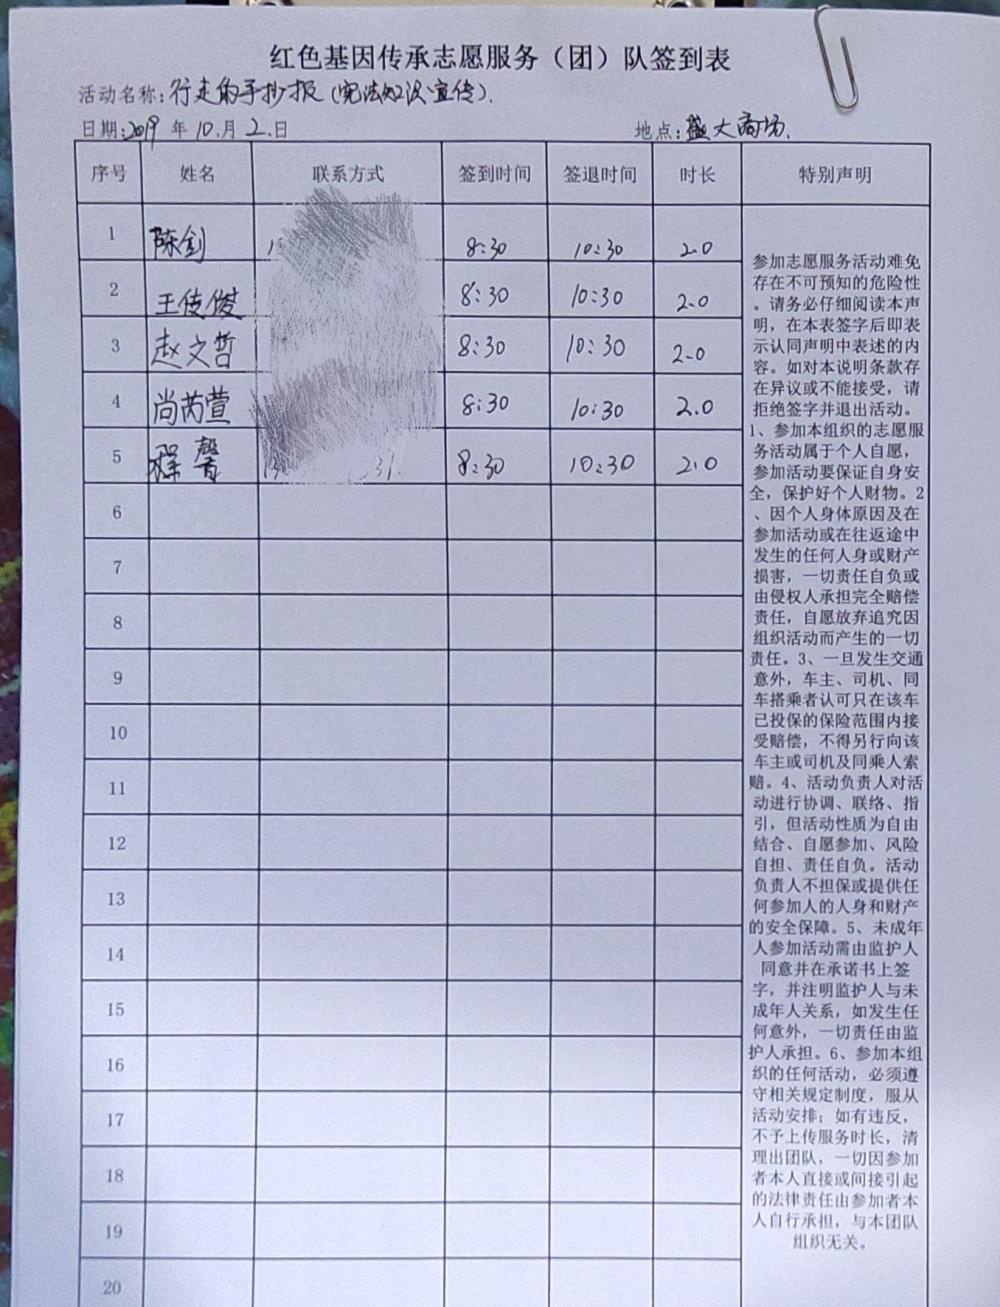 红色基因传承志愿服务（团）队签到表
活动名称：行走的手抄报（宪法知识宣传）.
日期：2019 年 10.月 2.日 地点：盛大商场.
序号 姓名 联系方式 签到时间 签退时间 时长 特别声明
1 陈剑 8:30 10:30 2.0
2 王俊 8:30 10:30 2.0
3 赵文哲 8:30 10:30 2.0
4 尚芮萱 8:30 10:30 2.0
5 程馨 31. 8:30 10:30 2.0
6
7
8
9
10
11
12
13
14
15
16
17
18
19
20
参加志愿服务活动难免
存在不可预知的危险性
。请务必仔细阅读本声
明，在本表签字后即表
示认同声明中表述的内
容。如对本说明条款存
在异议或不能接受，请
拒绝签字并退出活动。
1、参加本组织的志愿服
务活动属于个人自愿，
参加活动要保证自身安
全，保护好个人财物。2
、因个人身体原因及在
参加活动或在往返途中
发生的任何人身或财产
损害，一切责任自负或
由侵权人承担完全赔偿
责任，自愿放弃追究因
组织活动而产生的一切
责任。3、一旦发生交通
意外，车主、司机、同
车搭乘者认可只在该车
已投保的保险范围内接
受赔偿，不得另行向该
车主或司机及同乘人索
赔。4、活动负责人对活
动进行协调、联络、指
引，但活动性质为自由
结合、自愿参加、风险
自担、责任自负。活动
负责人不担保或提供任
何参加人的人身和财产
的安全保障。5、未成年
人参加活动需由监护人
同意并在承诺书上签
字，并注明监护人与未
成年人关系，如发生任
何意外，一切责任由监
护人承担。6、参加本组
织的任何活动，必须遵
守相关规定制度，服从
活动安排；如有违反，
不予上传服务时长，清
理出团队，一切因参加
者本人直接或间接引起
的法律责任由参加者本
人自行承担，与本团队
组织无关。